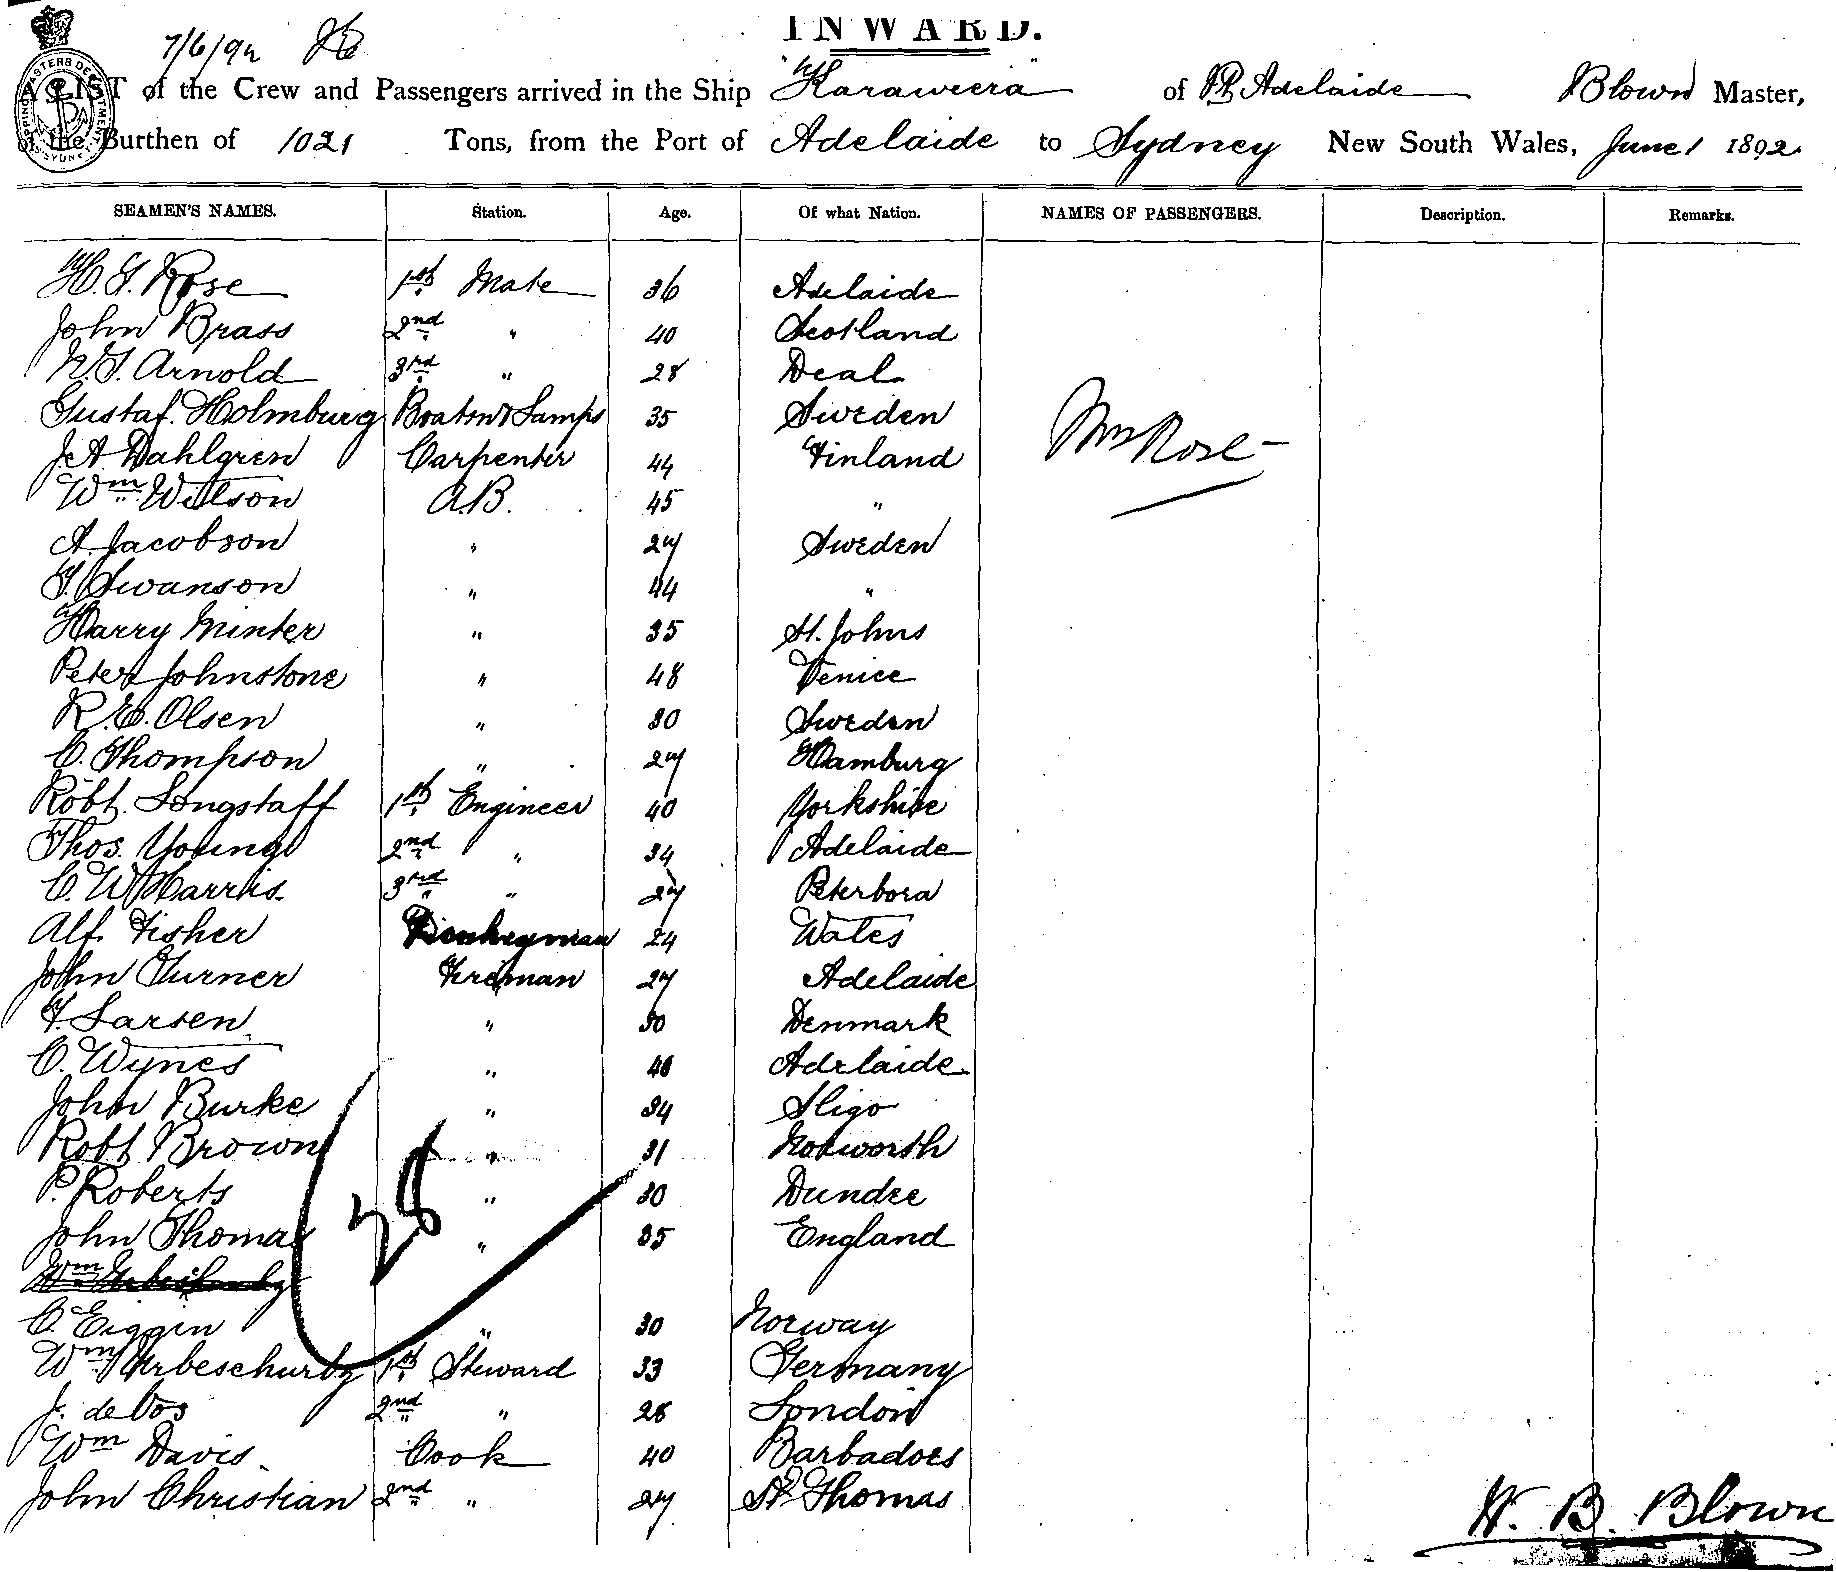 INWARD.
7/6/92
A LIST of the Crew and Passengers arrived in the Ship "Karaweera" of Pt Adelaide Blown Master,
of the Burthen of 1021 Tons, from the Port of Adelaide to Sydney New South Wales, June 1 1892
SEAMEN'S NAMES. Station. Age. Of what Nation. NAMES OF PASSENGERS. Description. Remarks.
H. G. Rose 1st Mate 36 Adelaide
John Brass 2nd " 40 Scotland
Arnold 3rd " 28 Deal
Gustaf. Holmburg Boatsn & Lamps 35 Sweden
J. A. Dahlgren Carpenter 44 Finland
Mrs Rose
Wm Wilson A.B. 45 "
A. Jacobson " 27 Sweden
Swanson " 44 "
Harry Minter " 35 St. Johns
Peter Johnstone " 48 Venice
R. E. Olsen " 30 Sweden
C. Thompson " 27 Hamburg
Robt. Longstaff 1st Engineer 40 Yorkshire
Thos. Young 2nd " 34 Adelaide
C. W Harris. 3rd " 27 Peterboro
Alf. Fisher Donkeyman 24 Wales
John Turner Fireman 27 Adelaide
F. Larsen " 30 Denmark
C. Wynes " Adelaide
John Burke " 34 Sligo
Robt Brown " 31
P. Roberts " 30 Dundee
John Thomas " 35 England
28
C Eiggin " 30 Norway
Wm Urbeschurby 1st Steward 33 Germany
J. de Vos 2nd " 28 London
Wm Davis. Cook 40 Barbadoes
John Christian 2nd " 27 St Thomas
W. B. Blown